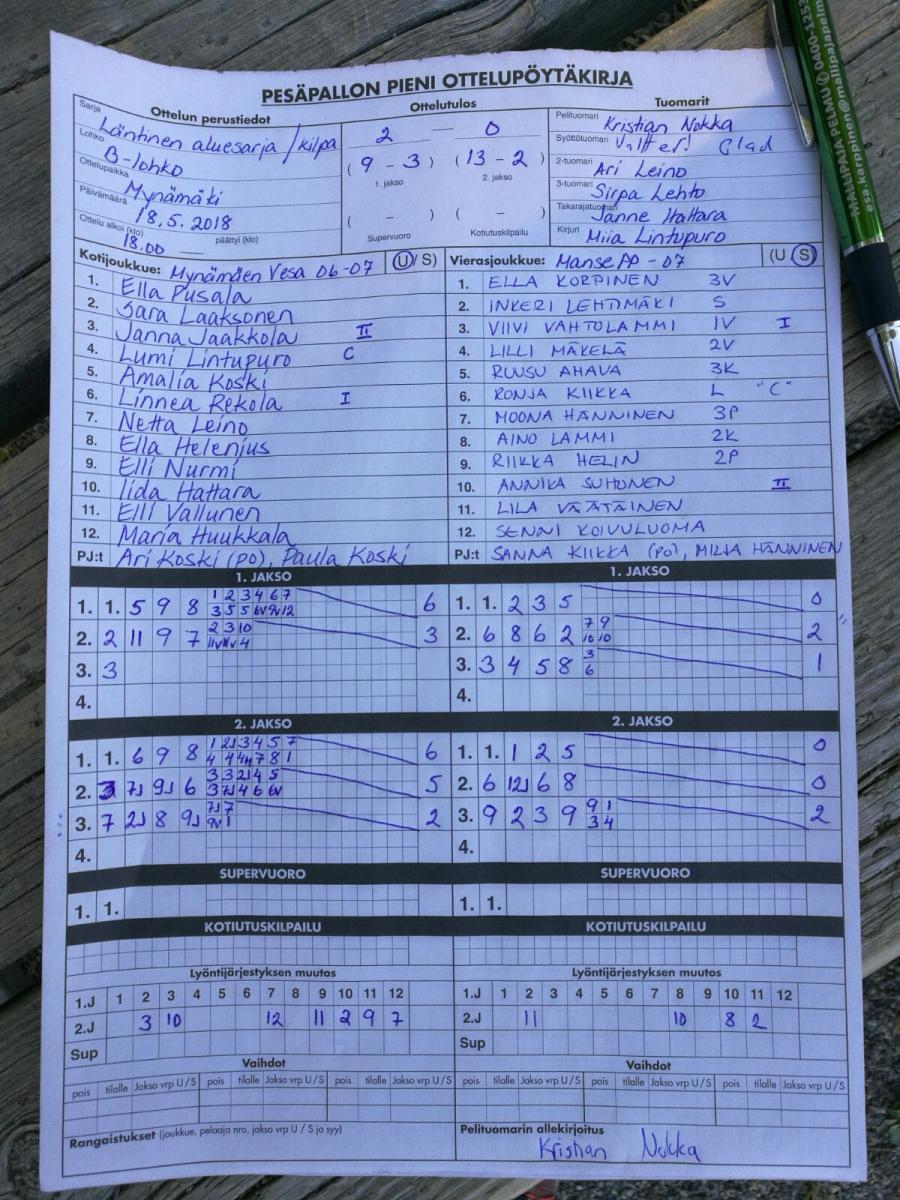 PESÄPALLON PIENI OTTELUPÖYTÄKIRJA
Ottelun perustiedot
Sarja Läntinen aluesarja / kilpa
Lohko B-lohko
Ottelupaikka Mynämäki
Päivämäärä 18.5.2018
Ottelu alkoi (klo) 18.00 päättyi (klo)
Ottelutulos
2 — 0
(9 - 3) (13 - 2)
1. jakso 2. jakso
( - ) ( - )
Supervuoro Kotiutuskilpailu
Tuomarit
Pelituomari Kristian Nokka
Syöttötuomari Valtteri Glad
2-tuomari Ari Leino
3-tuomari Sirpa Lehto
Takarajatuomari Janne Hattara
Kirjuri Miia Lintupuro
Kotijoukkue: Mynämäen Vesa 06-07 (U/S)
1. Ella Pusala
2. Sara Laaksonen
3. Janna Jaakkola II
4. Lumi Lintupuro C
5. Amalia Koski
6. Linnea Rekola I
7. Netta Leino
8. Ella Helenius
9. Elli Nurmi
10. Iida Hattara
11. Elli Vallunen
12. Maria Huukkala
PJ:t Ari Koski (po), Paula Koski
Vierasjoukkue: Manse PP - 07 (U S)
1. ELLA KORPINEN 3V
2. INKERI LEHTIMÄKI S
3. VIIVI VAHTOLAMMI 1V I
4. LILLI MÄKELÄ 2V
5. RUUSU AHAVA 3K
6. RONJA KIIKKA L "C"
7. MOONA HÄNNINEN 3P
8. AINO LAMMI 2K
9. RIIKKA HELIN 2P
10. ANNIKA SUHONEN II
11. LILA VÄÄTÄINEN
12. SENNI KOIVULUOMA
PJ:t SANNA KIIKKA (PO), MILJA HÄNNINEN
1. JAKSO
1. 1. 5 9 8 1 2 3 4 6 7 6
3 5 5 6V 9V 12
2. 2 11 9 7 2 3 10 3
11V 11V 4
3. 3
4.
1. JAKSO
1. 1. 2 3 5 0
2. 6 8 6 2 7 9 2
10 10
3. 3 4 5 8 3 1
6
4.
2. JAKSO
1. 1. 6 9 8 1 2J 3 4 5 7 6
2. 3 7J 9J 6 3 3 2J 4 5 5
3 7J 4 6 6V
3. 7 2J 8 9J 7J 7 2
9V 1
4.
2. JAKSO
1. 1. 1 2 5 0
2. 6 12J 6 8 0
3. 9 2 3 9 9 1 2
3 4
4.
SUPERVUORO
1. 1.
SUPERVUORO
1. 1.
KOTIUTUSKILPAILU
KOTIUTUSKILPAILU
Lyöntijärjestyksen muutos
1.J 1 2 3 4 5 6 7 8 9 10 11 12
2.J 3 10 12 11 2 9 7
Sup
Lyöntijärjestyksen muutos
1.J 1 2 3 4 5 6 7 8 9 10 11 12
2.J 11 10 8 2
Sup
Vaihdot
pois tilalle Jakso vrp U / S pois tilalle Jakso vrp U / S pois tilalle Jakso vrp U / S
Vaihdot
pois tilalle Jakso vrp U / S pois tilalle Jakso vrp U / S pois tilalle Jakso vrp U / S
Rangaistukset (joukkue, pelaaja nro, jakso vrp U / S ja syy)
Pelituomarin allekirjoitus
Kristian Nokka
MAILAPAJA PELMU